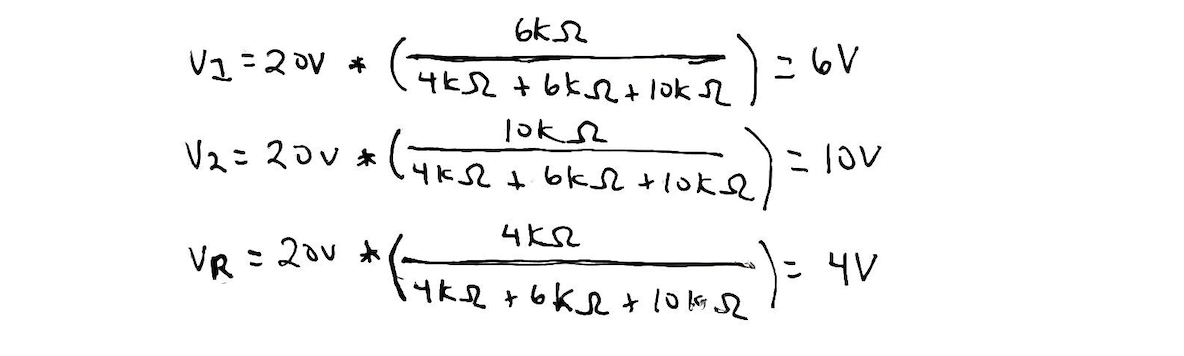 V1 = 20V * (6kΩ / (4kΩ + 6kΩ + 10kΩ)) = 6V
V2 = 20V * (10kΩ / (4kΩ + 6kΩ + 10kΩ)) = 10V
VR = 20V * (4kΩ / (4kΩ + 6kΩ + 10kΩ)) = 4V